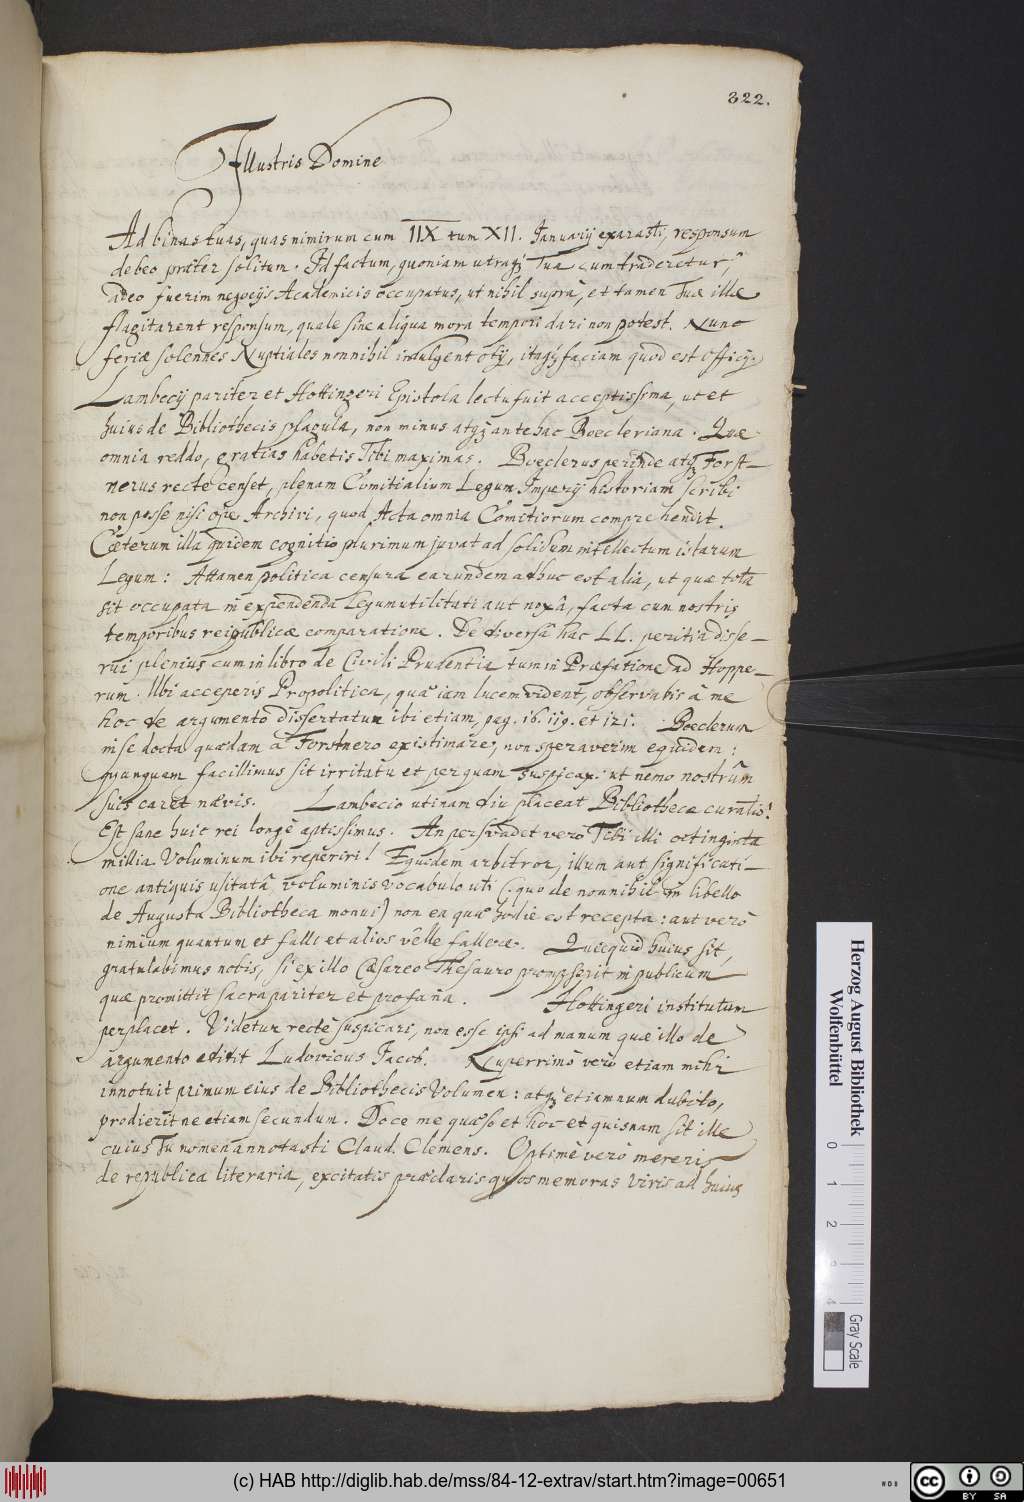 322.
Illustris Domine
Ad binas tuas, quas nimirum cum IIX tum XII. Januarij exarasti, responsum
debeo præter solitum. Id factum, quoniam utraq; Tua cum traderetur,
adeo fuerim negocijs Academicis occupatus, ut nihil suprà, et tamen Tuæ illæ
flagitarent responsum, quale sine aliqua mora tempori dari non potest. Nunc
feriæ solennes Nuptiales nonnihil indulgent otij, itaq; faciam quod est officij.
Lambecij pariter et Hottingeri Epistola lectu fuit acceptissima, ut et
huius de Bibliothecis plagula, non minus atq; antehac Boecleriana. Quæ
omnia reddo, gratias habetis Tibi maximas. Boeclerus perinde atq; Forst-
nerus recte censet, plenam Comitialium Legum Imperij historiam scribi
non posse nisi ope Archivi, quod Acta omnia Comitiorum comprehendit.
Cæterum illa quidem cognitio plurimum juvat ad solidum intellectum istarum
Legum: Attamen politica censura earundem adhuc est alia, ut quæ tota
sit occupata in expendenda Legum utilitati aut noxâ, facta cum nostris
temporibus reiqublicæ comparatione. De diversâ hac LL. peritia disse-
rui plenius cum in libro de Civili Prudentia tum in Præfatione ad Hoppe-
rum. Ubi acceperis Propolitica, quæ iam lucem vident, observabis à me
hoc de argumento dissertatum ibi etiam, pag. 16. 119. et 121. Boeclerum
in se docta quædam à Forstnero existimare, non speraverim equidem:
quunquam facillimus sit irritatu et perquam suspicax: ut nemo nostrûm
suis caret nævis. Lambecio utinam diu placeat Bibliothecæ curatio!
Est sane huic rei longè aptissimus. An persvadet verò Tibi illi octinginta
millia Voluminum ibi reperiri! Equidem arbitror, illum aut significati-
one antiquis usitatâ voluminis vocabulo uti (quo de nonnihil in libello
de Augusta Bibliotheca monui) non ea quæ hodie est recepta: aut verò
nimium quantum et falli et alios velle fallere. Quicquid huius sit,
gratulabimus nobis, si ex illo Cæsareo Thesauro prompserit in publicum
quæ promittit sacra pariter et profana. Hottingeri institutum
perplacet. Videtur rectè suspicari, non esse ipsi ad manum quæ illo de
argumento edidit Ludovicus Jacob. Nuperrimè verò etiam mihi
innotuit primum eius de Bibliothecis Volumen: atq; etiamnum dubito,
prodieritne etiam secundum. Doce me quæso et hoc et quisnam sit ille
cuius Tu nomen annotasti Claud. Clemens. Optimè verò mereris
de republica literaria, excitatis præclaris quos memoras viris ad huius
Herzog August Bibliothek
Wolfenbüttel
0 1 2 3 4
Gray Scale
(c) HAB http://diglib.hab.de/mss/84-12-extrav/start.htm?image=00651
cc BY SA